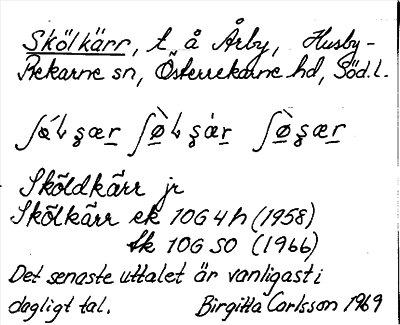 Skölkärr, t. å Årby, Husby-
Rekarne sn, Österrekarne hd, Söd.l.
Sköldkärr jr
Skölkärr ek 10G 4h (1958)
tk 10G SO (1966)
Det senaste uttalet är vanligast i
dagligt tal. Birgitta Carlsson 1969